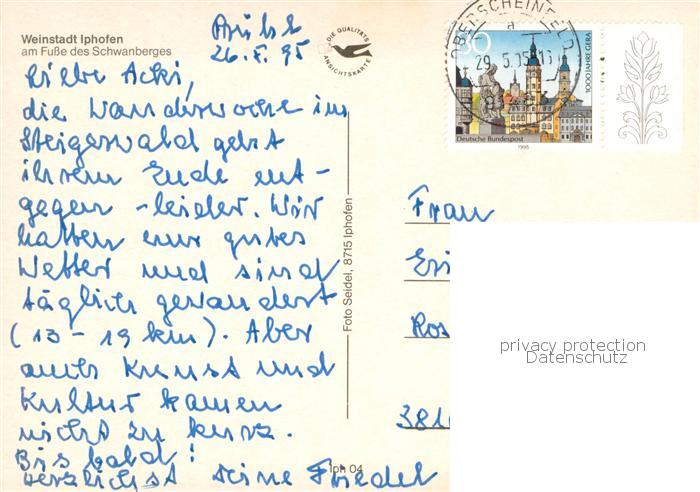 Weinstadt Iphofen
am Fuße des Schwanberges
26.5.95
Liebe Acki,
die Wanderwoche im
Steigerwald geht
ihrem Ende ent-
gegen - leider. Wir
hatten nur gutes
Wetter und sind
täglich gewandert
(13 - 19 km). Aber
auch Kunst und
Kultur kamen
nicht zu kurz.
Bis bald!
Herzlichst Deine Friedel
DIE QUALITÄTS
ANSICHTSKARTE
Foto Seidel, 8715 Iphofen
Iph 04
OBERSCHEINFELD
a
29.5.95
80
1000 JAHRE GERA
Deutsche Bundespost
1995
Frau
privacy protection
Datenschutz